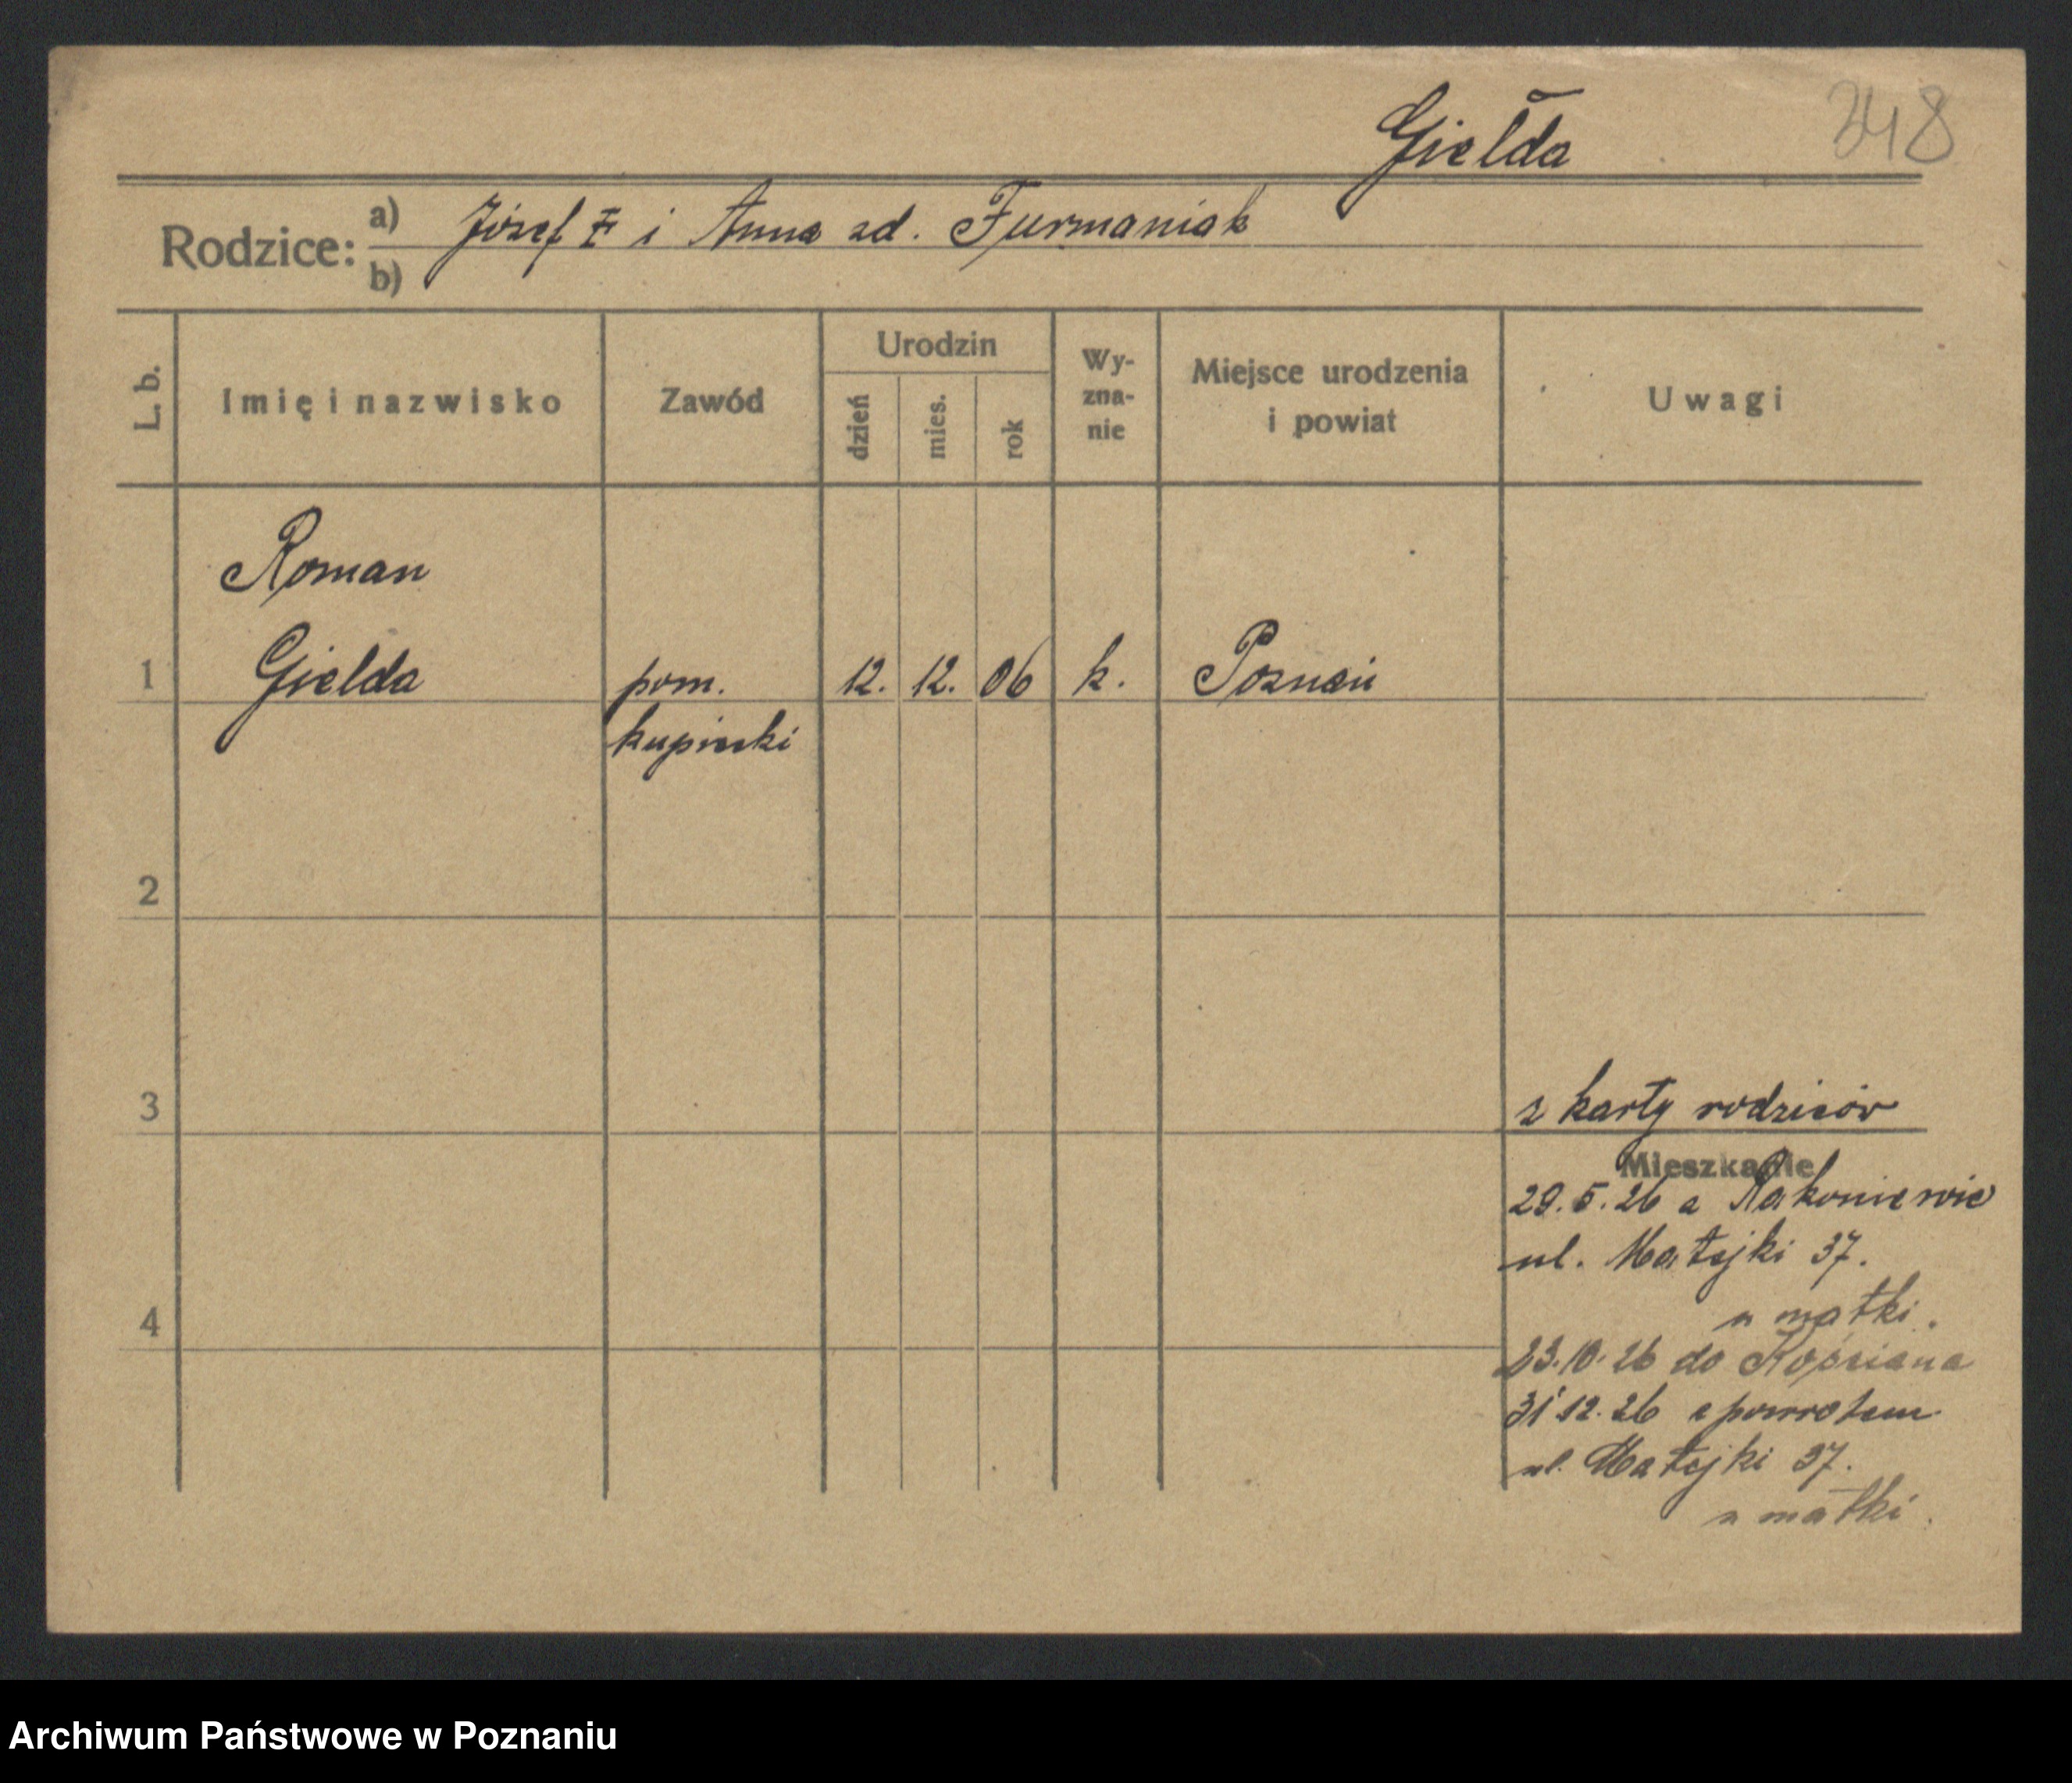 Giełda
348
Rodzice:
a) Józef i Anna zd. Furmaniak
b)
L. b.
Imię i nazwisko
Zawód
Urodzin
dzień
mies.
rok
Wy-
zna-
nie
Miejsce urodzenia
i powiat
Uwagi
Roman
1 Gielda pom. 12. 12. 06 k. Poznań
kupiecki
2
3
z karty rodziców
Mieszkanie
29.5.26 z Rakoniewic
ul. Matejki 37.
u matki.
4
23.10.26 do Kościana
31 12.26 z powrotem
ul. Matejki 37.
u matki.
Archiwum Państwowe w Poznaniu